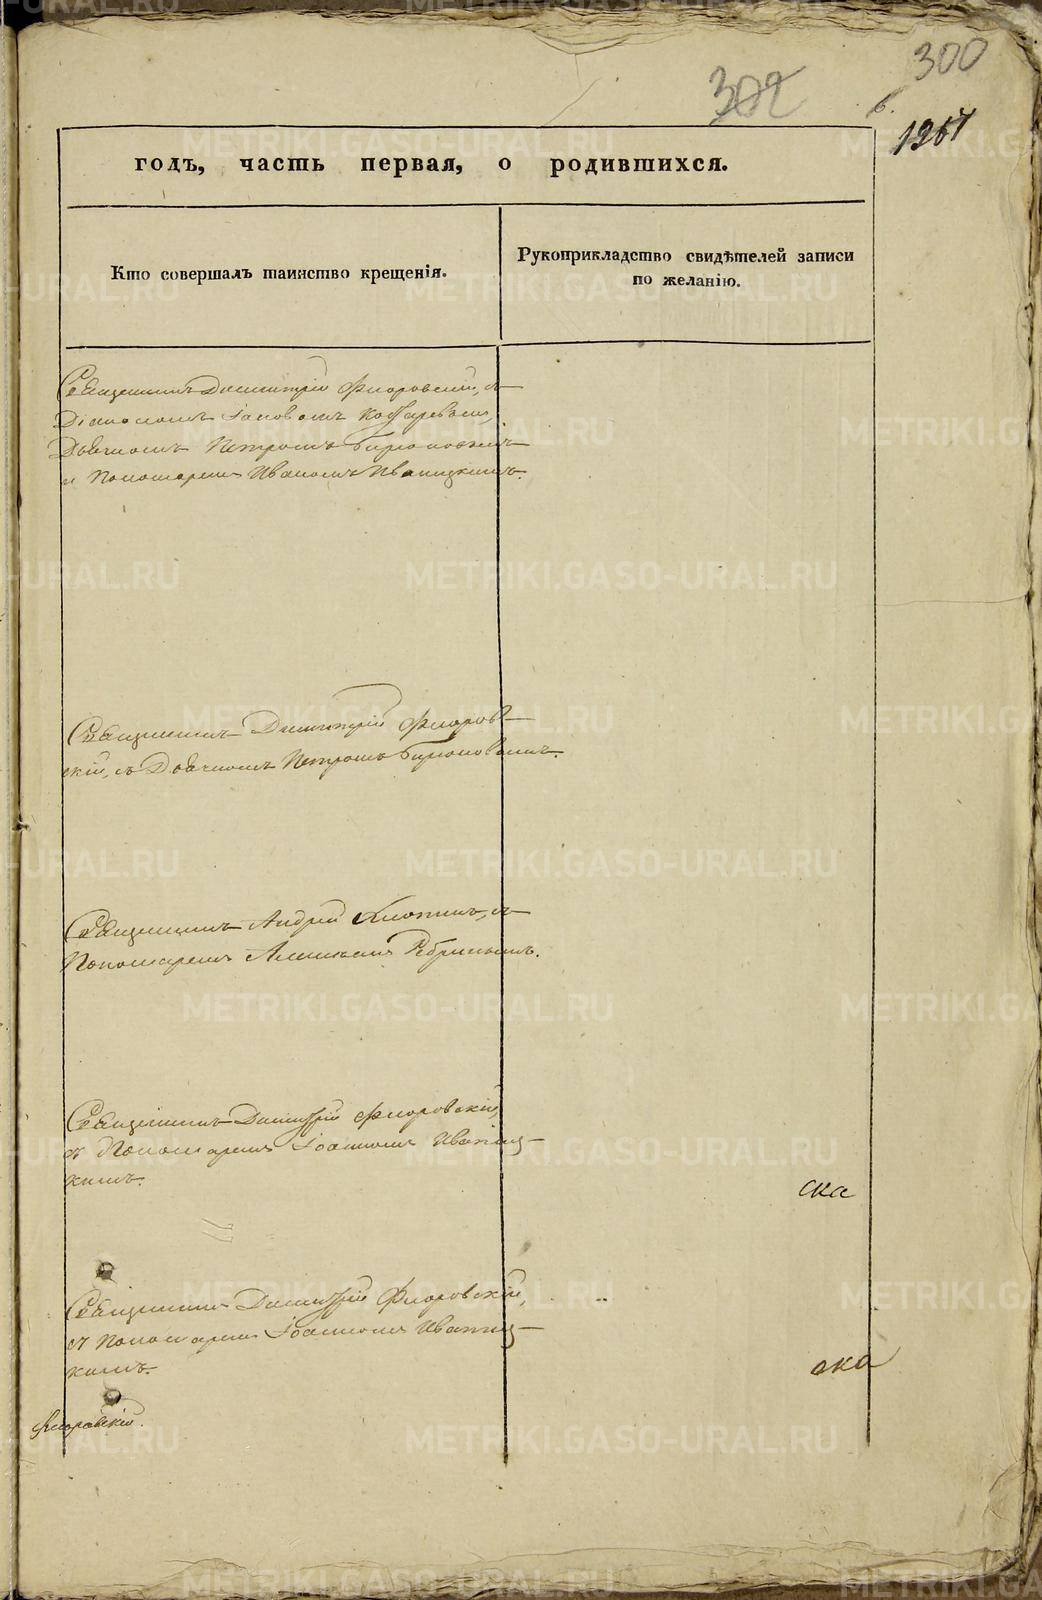 300
302
1267
годъ, часть первая, о родившихся.
Кто совершалъ таинство крещенія.
Рукоприкладство свидѣтелей записи
по желанію.
Священникъ Димитрій Флоровскій, съ
Діакономъ
Дьячкомъ Петромъ
и Пономаремъ Иваномъ Иваницкимъ.
Священникъ Димитрій Флоров-
скій, съ Дьячкомъ Петромъ
Священникъ Андрей съ
Пономаремъ
Священникъ Димитрій Флоровскій,
съ Пономаремъ Іоанномъ Иваниц-
кимъ.
ска
Священникъ Димитрій Флоровскій,
съ Пономаремъ Іоанномъ Иваниц-
кимъ.
ска
Флоровскій.
METRIKI.GASO-URAL.RU